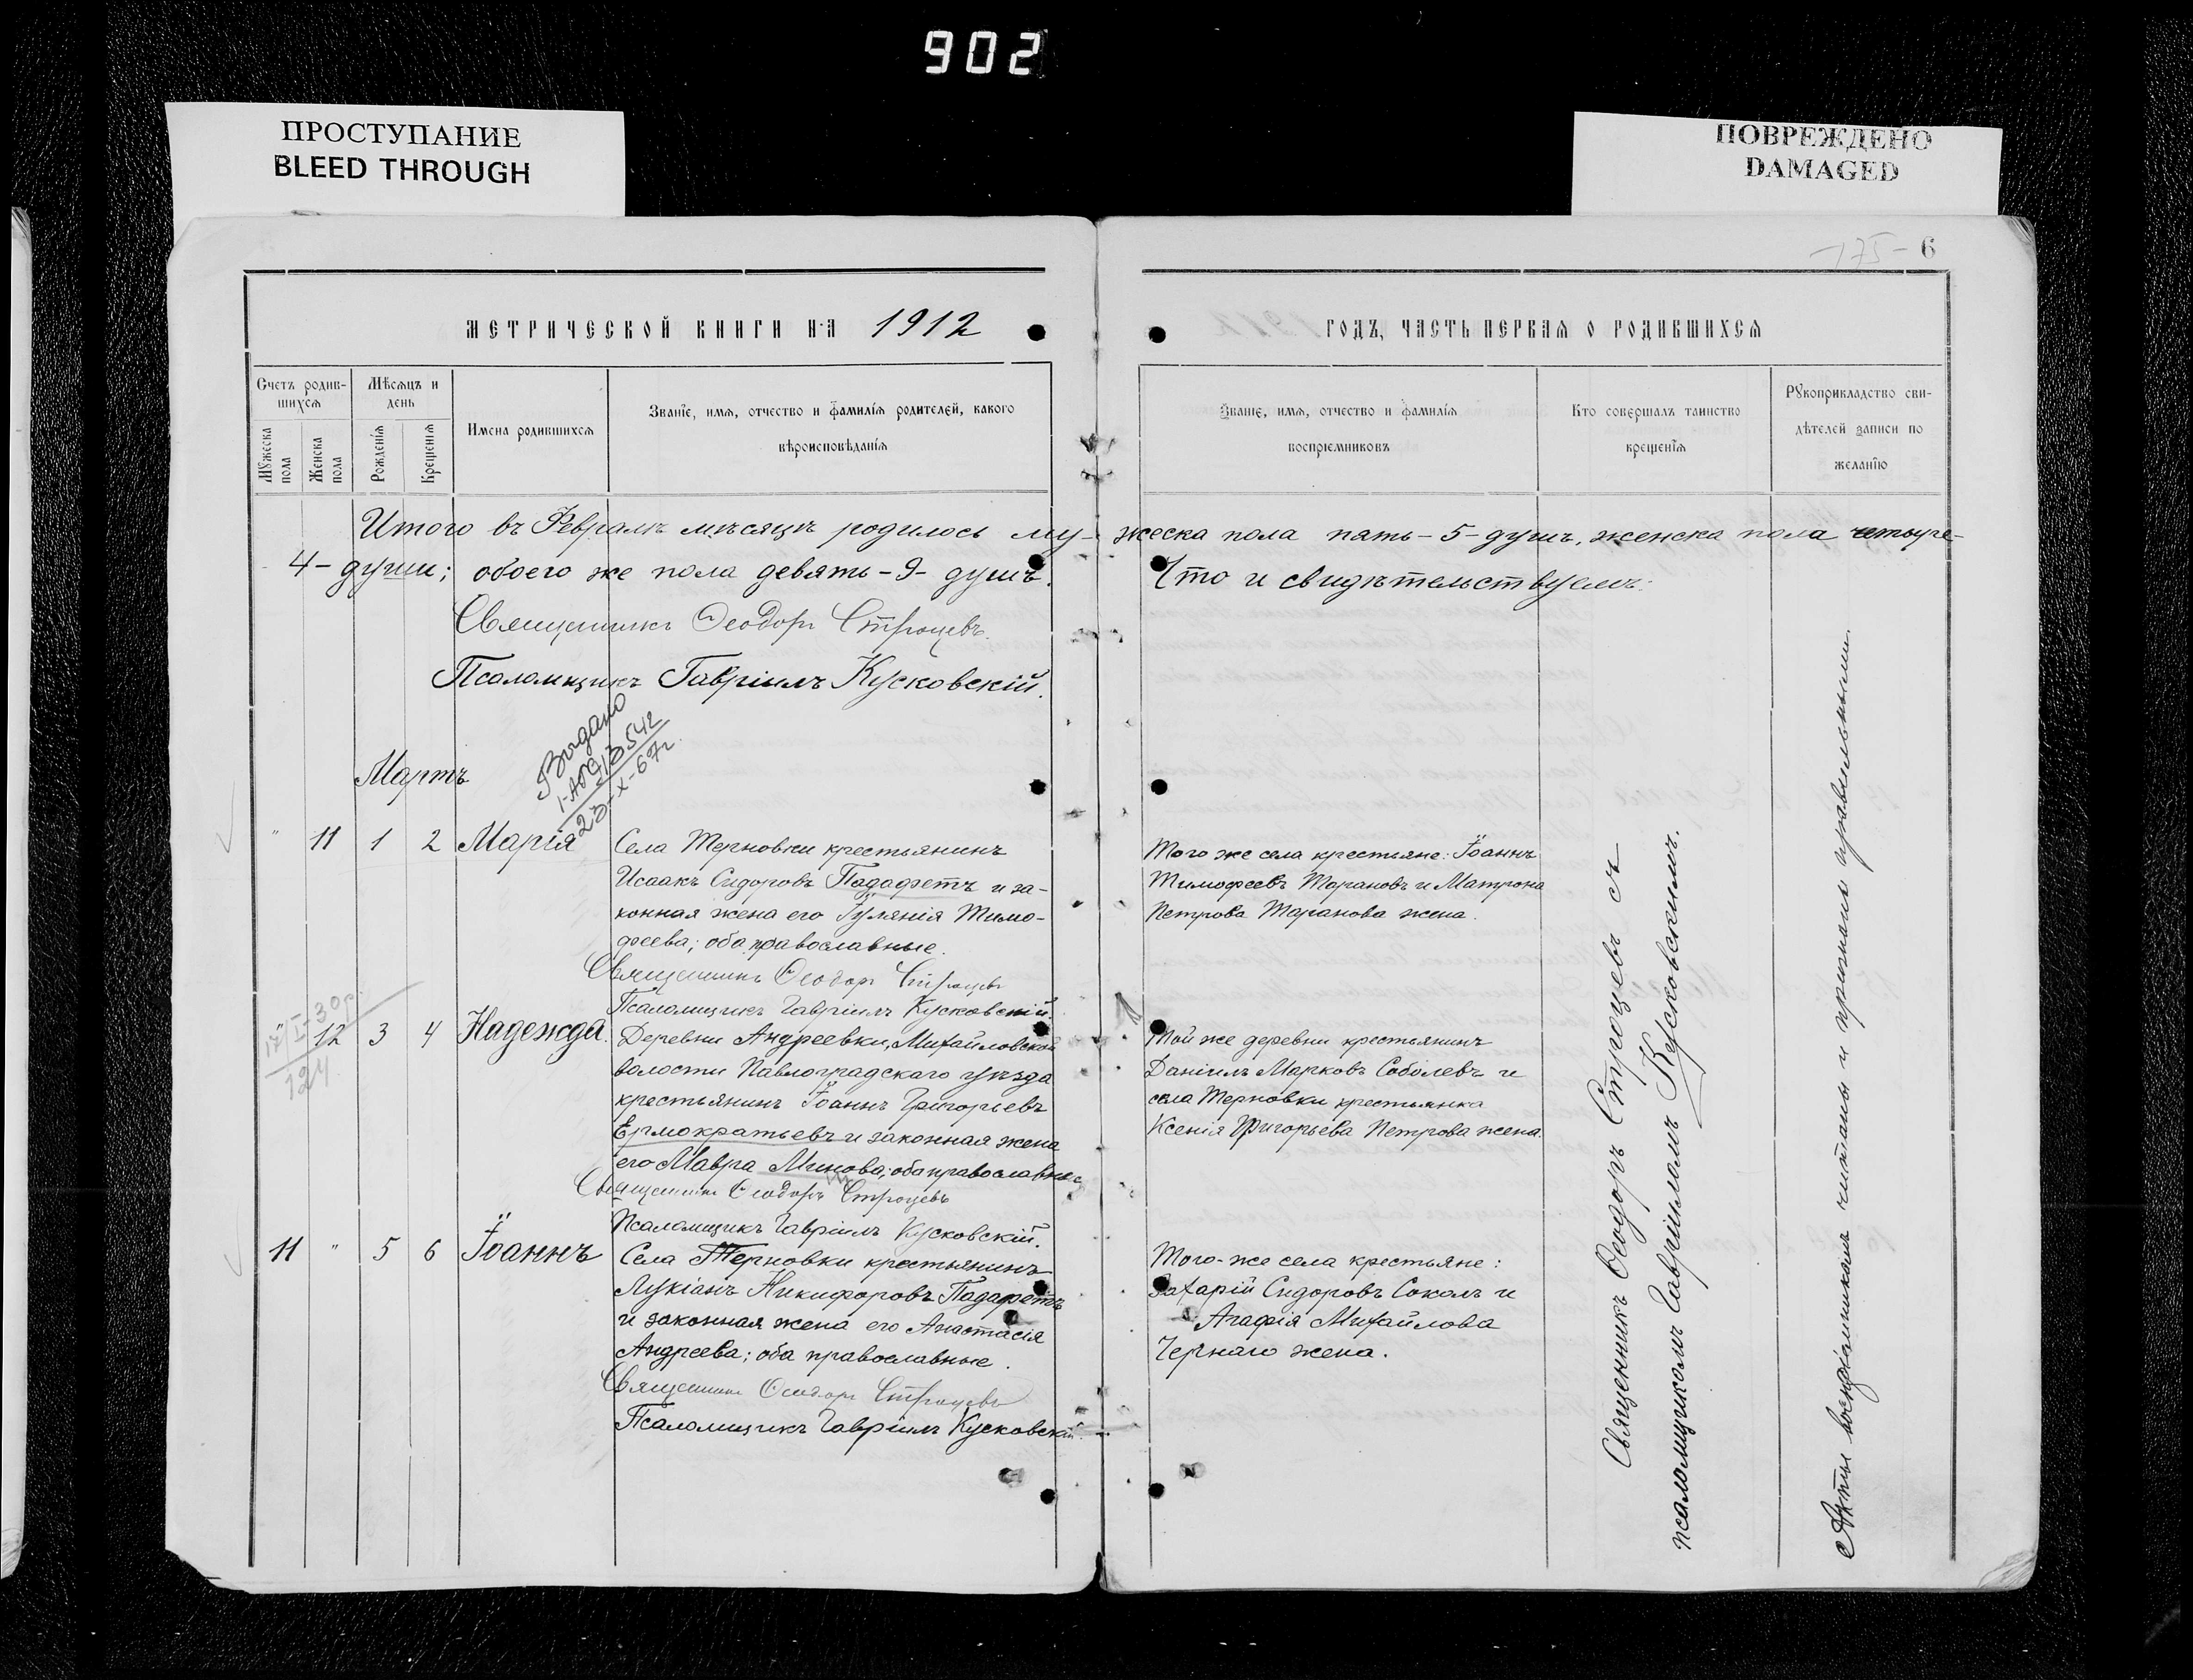 902
ПРОСТУПАНИЕ
BLEED THROUGH
ПОВРЕЖДЕНО
DAMAGED
-175-
6
МЕТРИЧЕСКОЙ КНИГИ НА 1912
ГОДЪ, ЧАСТЬ ПЕРВАЯ О РОДИВШИХСЯ
Счетъ родив-
шихся
Мѣсяцъ и
день
Мужеска
пола
Женска
пола
Рожденїя
Крещенїя
Имена родившихся
Званїе, имя, отчество и фамилїя родителей, какого
вѣроисповѣданїя
Званїе, имя, отчество и фамилїя
воспрїемниковъ
Кто совершалъ таинство
крещенїя
Рукоприкладство сви-
дѣтелей записи по
желанїю
Итого въ Февралѣ мѣсяцѣ родилось му-
жеска пола пять-5-душъ, женска пола четыре-
4-души; обоего же пола девять-9-душъ.
Что и свидѣтельствуемъ:
Священникъ Ѳеодоръ Строцевъ.
Псаломщикъ Гавріилъ Кусковскій.
Выдано
23-X-67г.
Мартъ
" 11 1 2 Марія
Села Терновки крестьянинъ
Исаакъ Сидоровъ Падафетъ и за-
конная жена его Іуліанія Тимо-
феева; оба православные.
Священникъ Ѳеодоръ Строцевъ
Псаломщикъ Гавріилъ Кусковскій.
Того же села крестьяне: Іоаннъ
Тимофеевъ Тарановъ и Матрона
Петрова Таранова жена.
" 12 3 4 Надежда.
17/I-30р.
124
Деревни Андреевки, Михайловской
волости Павлоградскаго уѣзда
крестьянинъ Іоаннъ Григорьевъ
Ермократьевъ и законная жена
его Мавра Минова; оба православные
Священникъ Ѳеодоръ Строцевъ
Псаломщикъ Гавріилъ Кусковскій.
Той же деревни крестьянинъ
Даніилъ Марковъ Соболевъ и
села Терновки крестьянка
Ксенія Григорьева Петрова жена.
11 " 5 6 Іоаннъ
Села Терновки крестьянинъ
Лукіанъ Никифоровъ Падафетъ
и законная жена его Анастасія
Андреева; оба православные.
Священникъ Ѳеодоръ Строцевъ
Псаломщикъ Гавріилъ Кусковскій.
Того-же села крестьяне:
Захарій Сидоровъ Соколъ и
Агафія Михайлова
Чернаго жена.
Священникъ Ѳеодоръ Строцевъ съ
псаломщикомъ Гавріиломъ Кусковскимъ.
Акты воспріемникамъ читаны и признаны правильными.